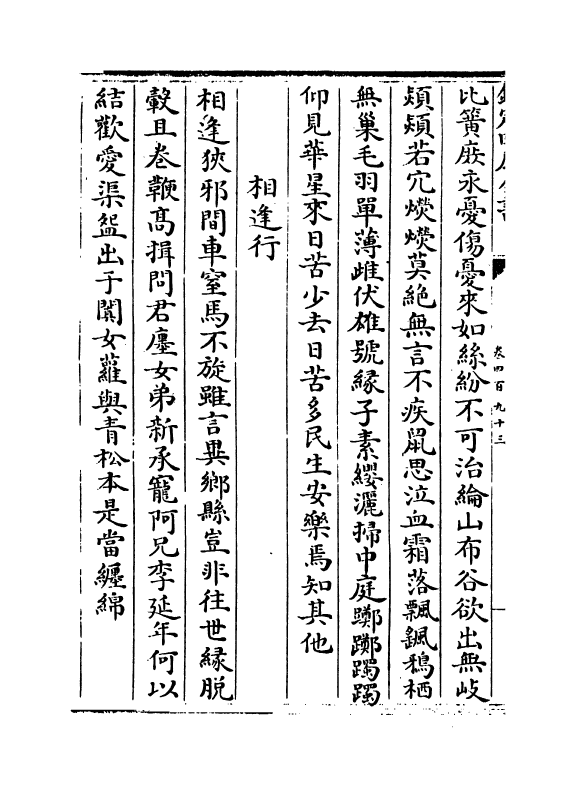 卷四百九十三
比簧廏永憂傷憂來如絲紛不可治綸山布谷欲出無岐
熲熲若穴熒熒莫絶無言不疾鼠思泣血霜落飄颻鵶栖
無巢毛羽單薄雌伏雄號縁子素纓灑掃中庭躑躑躅躅
仰見華星來日苦少去日苦多民生安樂焉知其他
相逢行
相逢狹邪間車窒馬不旋雖言異鄉縣豈非往世縁脱
轂且卷鞭高揖問君廛女弟新承寵阿兄李延年何以
結歡愛渠盌出于闐女蘿與青松本是當纏綿